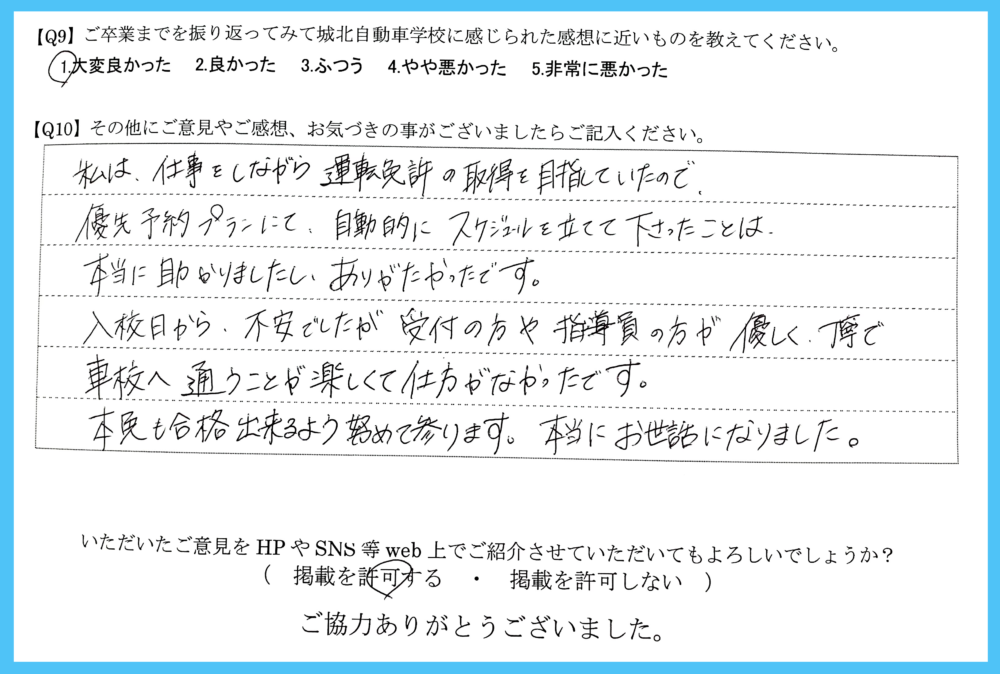 【Q9】ご卒業までを振り返ってみて城北自動車学校に感じられた感想に近いものを教えてください。
1.大変良かった 2.良かった 3.ふつう 4.やや悪かった 5.非常に悪かった
【Q10】その他にご意見やご感想、お気づきの事がございましたらご記入ください。
私は、仕事をしながら運転免許の取得を目指していたので、
優先予約プランにて、自動的にスケジュールを立てて下さったことは、
本当に助かりましたし、ありがたかったです。
入校日から、不安でしたが受付の方や指導員の方が優しく、丁寧で
車校へ通うことが楽しくて仕方がなかったです。
本免も合格出来るよう努めて参ります。本当にお世話になりました。
いただいたご意見をHPやSNS等web上でご紹介させていただいてもよろしいでしょうか？
（ 掲載を許可する ・ 掲載を許可しない ）
ご協力ありがとうございました。